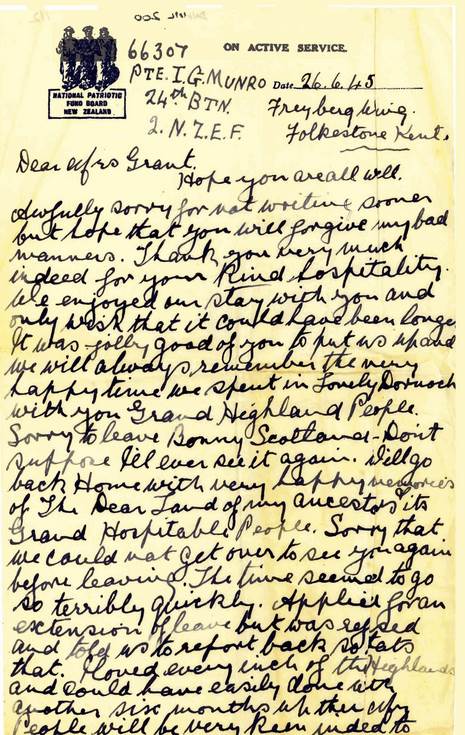 66307
ON ACTIVE SERVICE.
PTE. I.G. MUNRO Date 26.6.45
24th BTN. Freyberg Wing.
2.N.Z.E.F. Folkestone Kent.
NATIONAL PATRIOTIC
FUND BOARD
NEW ZEALAND
Dear Mrs Grant.
Hope you are all well.
Awfully sorry for not writing sooner
but hope that you will forgive my bad
manners. Thank you very much
indeed for your kind hospitality.
We enjoyed our stay with you and
only wish that it could have been longer
It was jolly good of you to put us up and
we will always remember the very
happy time we spent in Lovely Dornoch
with you Grand Highland People.
Sorry to leave Bonny Scotland - Don't
suppose I'll ever see it again. Will go
back Home with very happy memories
of The Dear Land of my ancestors & its
Grand Hospitable People. Sorry that
we could not get over to see you again
before leaving. The time seemed to go
so terribly quickly. Applied for an
extension of leave but was refused
and told us to report back so tats
that. I loved every inch of the Highlands
and could have easily done with
another six months up ther My
People will be very keen indeed to